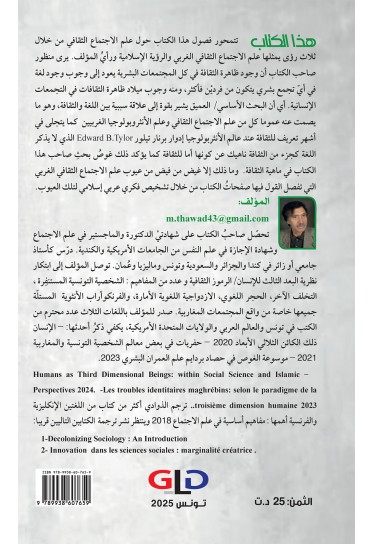 هذا الكتاب
تتمحور فصول هذا الكتاب حول علم الاجتماع الثقافي من خلال
ثلاث رؤى يمثلها علم الاجتماع الغربي والرؤية الإسلامية ورأيُ المؤلف. يرى منظور
صاحب الكتاب أن وجود ظاهرة الثقافة في كل المجتمعات البشرية يعود إلى وجوب وجود لغة
في أيّ تجمع بشري يتكون من فرديْن فأكثر، ومنه وجوب ميلاد ظاهرة الثقافات في التجمعات
الإنسانية. أي أن البحث الأساسي/ العميق يشير بقوة إلى علاقة سببية بين اللغة والثقافة، وهو ما
يصمت عنه عموما كل من علم الاجتماع الثقافي وعلم الأنثروبولوجيا الغربيين كما يتجلى في
أشهر تعريف للثقافة عند عالم الأنثروبولوجيا إدوار برنار تيلور Edward B.Tylor الذي لا يذكر
اللغة كجزء من الثقافة ناهيك عن كونها أما للثقافة كما يؤكد ذلك غوصُ بحثِ صاحب هذا
الكتاب في ماهية الثقافة. وما ذلك إلا غيض من فيض من عيوب علم الاجتماع الثقافي الغربي
التي تفصل القول فيها صفحاتُ الكتاب من خلال تشخيص فكري عربي إسلامي لتلك العيوب.
المؤلف:
m.thawad43@gmail.com
تحصّل صاحبُ الكتاب على شهادتيْ الدكتورة والماجستير في علم الاجتماع
وشهادة الإجازة في علم النفس من الجامعات الأمريكية والكندية. درّس كأستاذ
جامعي أو زائر في كندا والجزائر والسعودية وتونس وماليزيا وعُمان. توصل المؤلف إلى ابتكار
نظرية البعد الثالث للإنسان/ الرموز الثقافية وعدد من المفاهيم : الشخصية التونسية المستنفِرة ،
التخلف الآخر، الحجر اللغوي، الازدواجية اللغوية الأمارة، والفرنكوأراب الأنثوية المستلّة
جميعها خاصة من واقع المجتمعات المغاربية. صدر للمؤلف باللغات الثلاث عدد محترم من
الكتب في تونس والعالم العربي والولايات المتحدة الأمريكية، يكفي ذكرُ أحدثها: – الإنسان
ذلك الكائن الثلاثي الأبعاد 2020 – حفريات في بعض معالم الشخصية التونسية والمغاربية
2021 – موسوعة الغوص في حصاد بردايم علم العمران البشري 2023.
Humans as Third Dimensional Beings: within Social Science and Islamic –
Perspectives 2024. -Les troubles identitaires maghrébins: selon le paradigme de la
troisième dimension humaine 2023.. ترجم الذوادي أكثر من كتاب من اللغتين الإنكليزية
والفرنسية أهمها : مفاهيم أساسية في علم الاجتماع 2018 وينتظر نشر ترجمة الكتابين التاليين قريبا:
1-Decolonizing Sociology : An Introduction
2- Innovation dans les sciences sociales : marginalité créatrice .
ISBN 978-9938-60-765-9
9 789938 607659
GLD
تونس 2025
الثمن: 25 د.ت